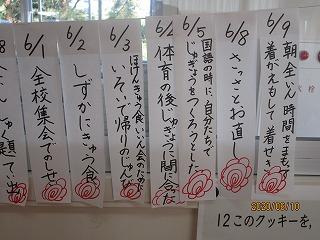 6/9
朝全いん時間をまもって
着がえもして着せき
6/8
さっさとお直し
6/5
国語の時に、自分たちで
じゅぎょうをつくろうとした
体育の後じゅぎょうに間に合った
6/3
ほけんきゅう食いいん会のために
いそいで帰りのじゅんび
6/2
しずかにきゅう食
6/1
全校集会でのしせ
12このクッキーを、
2020/06/10